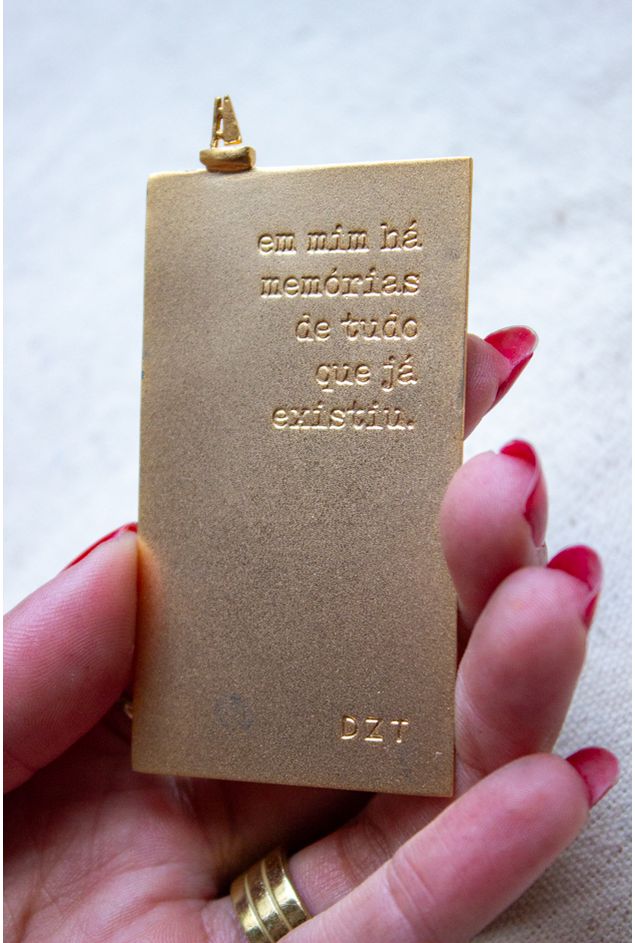 em mim há
memórias
de tudo
que já
existiu.
DZT